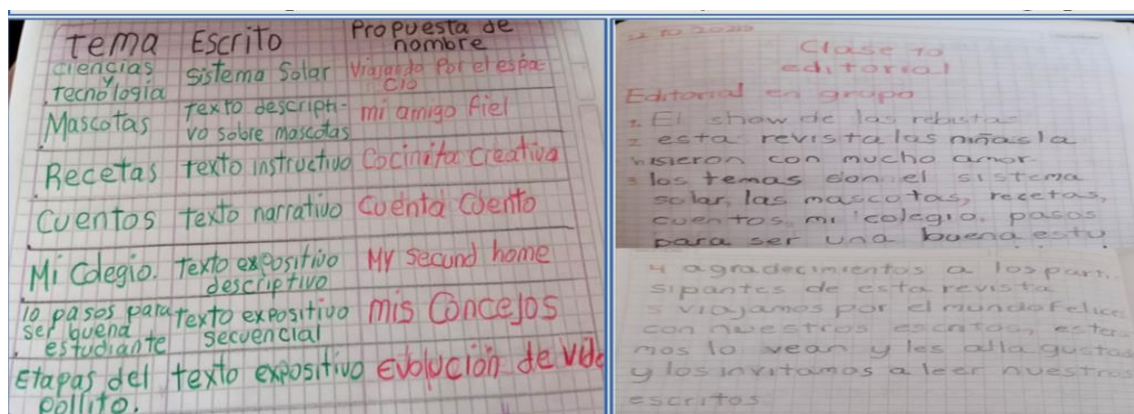 Tema Escrito Propuesta de nombre
ciencias y tecnología Sistema Solar Viajando Por el espacio
Mascotas texto descripti-vo sobre mascotas mi amigo fiel
Recetas texto instructivo Cocinita Creativa
Cuentos texto narrativo Cuenta Cuento
Mi Colegio. Texto expositivo descriptivo My Secund home
10 pasos para ser buena estudiante texto expositivo secuencial mis Concejos
Etapas del pollito. texto expositivo Evolución de vida
Clase 10
editorial
Editorial en grupo
1. El show de las rebistas
2 esta revista las niñas la
hisieron con mucho amor
3 los temas son el sistema
solar, las mascotas, recetas,
cuentos, mi colegio, pasos
para ser una buena estu
4 agradecimientos a los parti
sipantes de esta revista
5 viajamos por el mundo felices
con nuestros escritos, espera
mos lo vean y les alla gustado
y los invitamos a leer nuestros
escritos